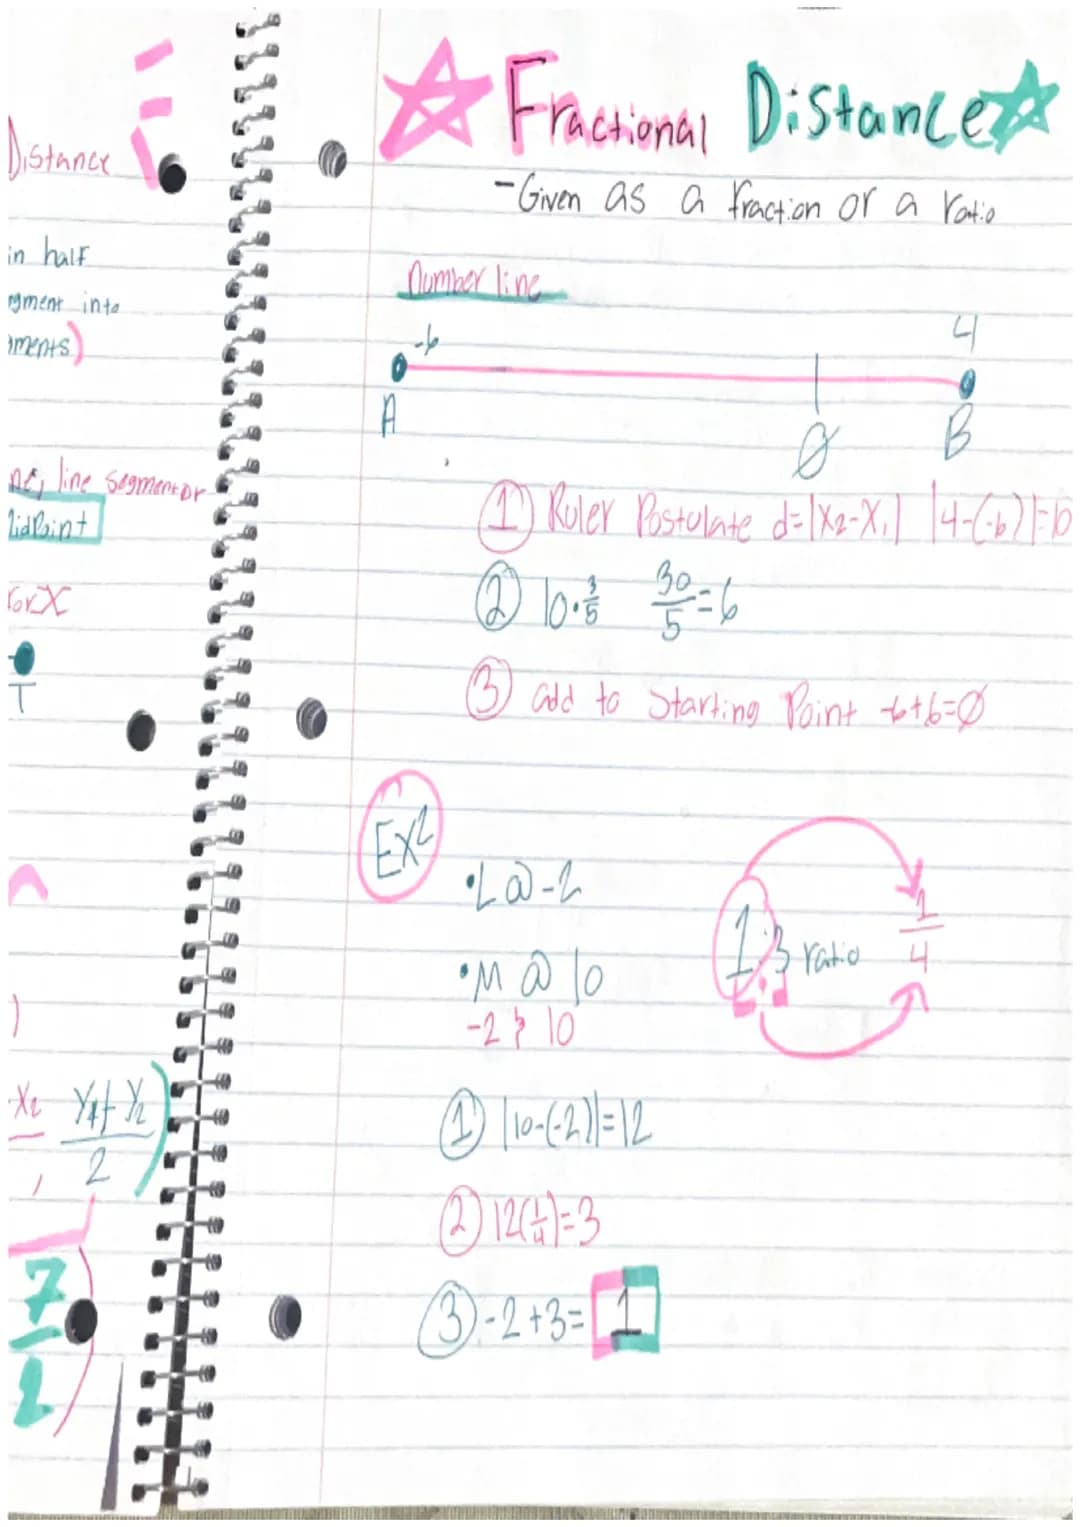 Distance
in half
egment into
ments)
ne, line segment or
MidPoint
for X
T
)
X₂ Y₁+Y₂
, 2
7
2
Fractional Distance
-Given as a fraction or a ratio
Number line
-6 4
A Ø B
① Ruler Postulate d=|X₂-X₁| |4-(-6)|=10
② 10·3/5 30/5=6
③ add to Starting Point -6+6=Ø
Ex2
•L @ -2
1:3 ratio 1/4
•M @ 10
-2 → 10
① |10-(-2)|=12
② 12(1/4)=3
③ -2+3= 1